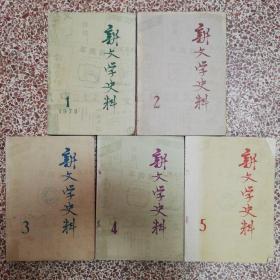 新文学史料
1
1978
新文学史料
2
新文学史料
3
新文学史料
4
新文学史料
5